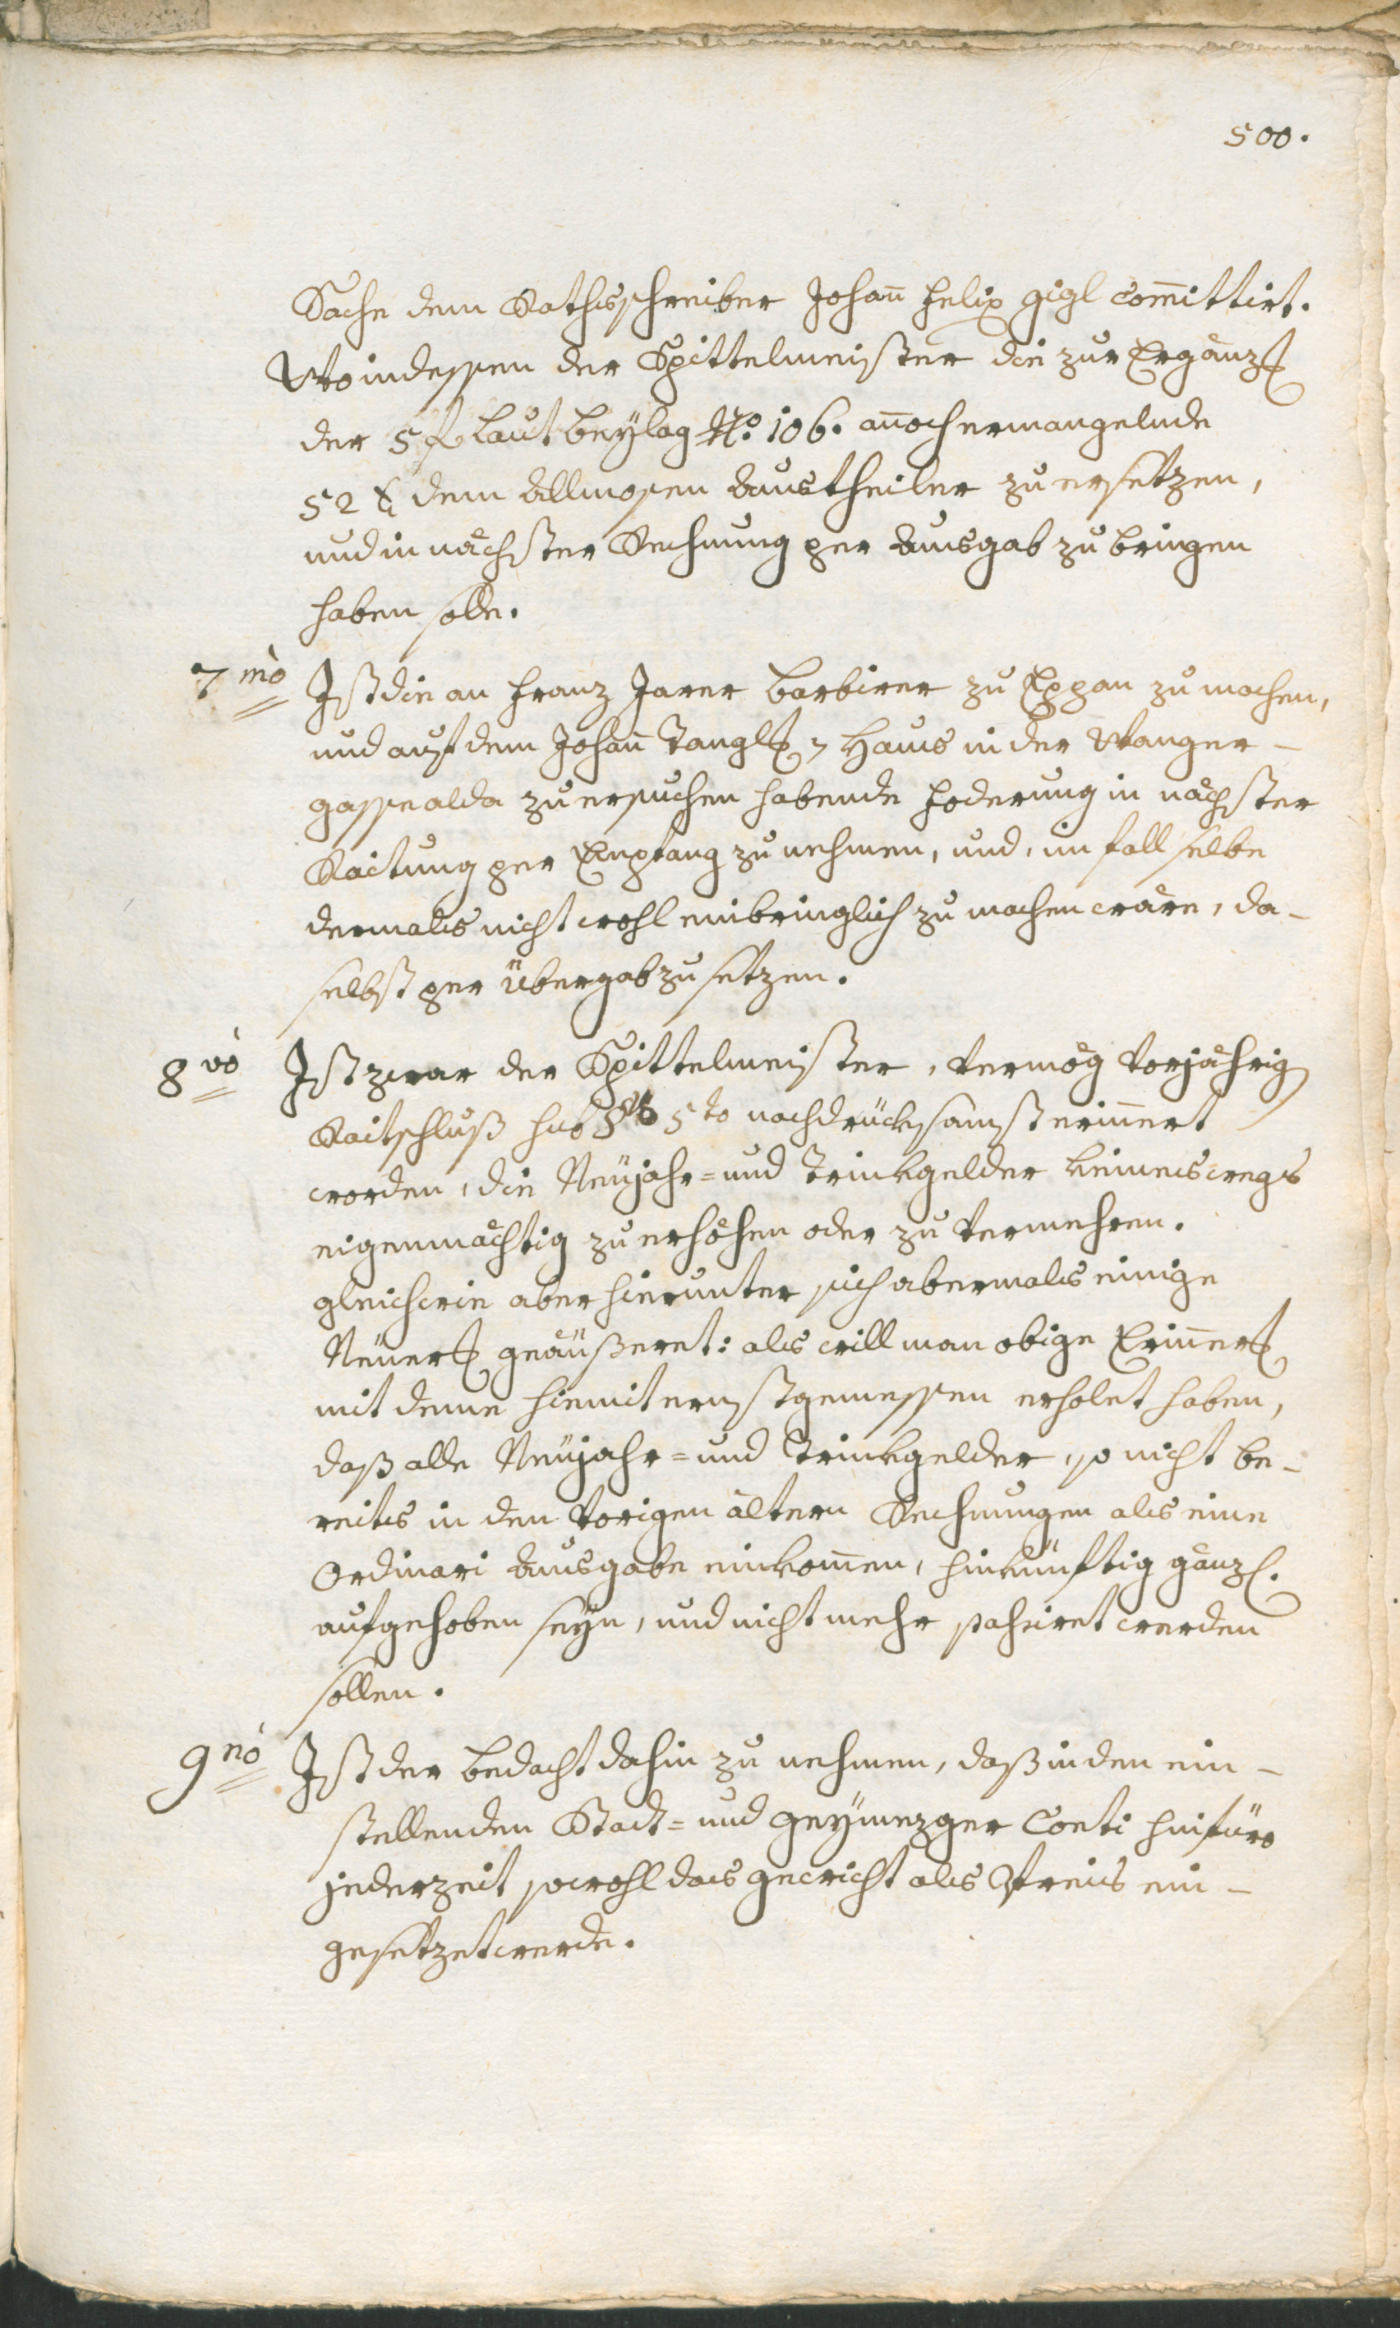 500.
Sache dem Rathsschreiber Johan̅ Felix Gigl com̅ittirt.
Wo indessen der Spittelmeister die zur Ergänz
der 5 f Laut Beylag No. 106. an̅och ermangelnde
52 x dem Allmosen Austheiler zu ersetzen,
und in nächster Rechnung per Ausgab zu bringen
haben solle.
7mo Ist die an Franz Jarer Barbirer zu Eppan zu machen,
und auf dem Johan̅ Tangl Haus in der Wanger-
gasse alda zu ersuchen habende Foderung in nächster
Raitung per Empfang zu nehmen, und, im fall selbe
dermals nicht wohl einbringlich zu machen wäre, da-
selbst per Übergab zu setzen.
8vo Ist zwar der Spittelmeister, vermög vorjährig
Raitschluß sub 5to nachdrücksamst erin̅ert
worden, die Neüjahr= und Trinkgelder keineswegs
eigenmächtig zu erhöhen oder zu vermehren.
gleichwie aber hierunter sich abermals einige
Neüer geäüßeret: als will man obige Erin̅er
mit deme hiemit ernstgemessen erholet haben,
daß alle Neüjahr= und Trinkgelder, so nicht be-
reits in den vorigen ältern Rechnungen als eine
Ordinari Ausgabe einkom̅en, hinkünftig gänzl.
aufgehoben seyn, und nicht mehr passiret werden
sollen.
9no Ist der Bedacht dahin zu nehmen, daß in den ein-
stellenden Stadt= und Geymezger Conti hinfüro
jederzeit sowohl das Gewicht als Preis ein-
gesetzet werde.